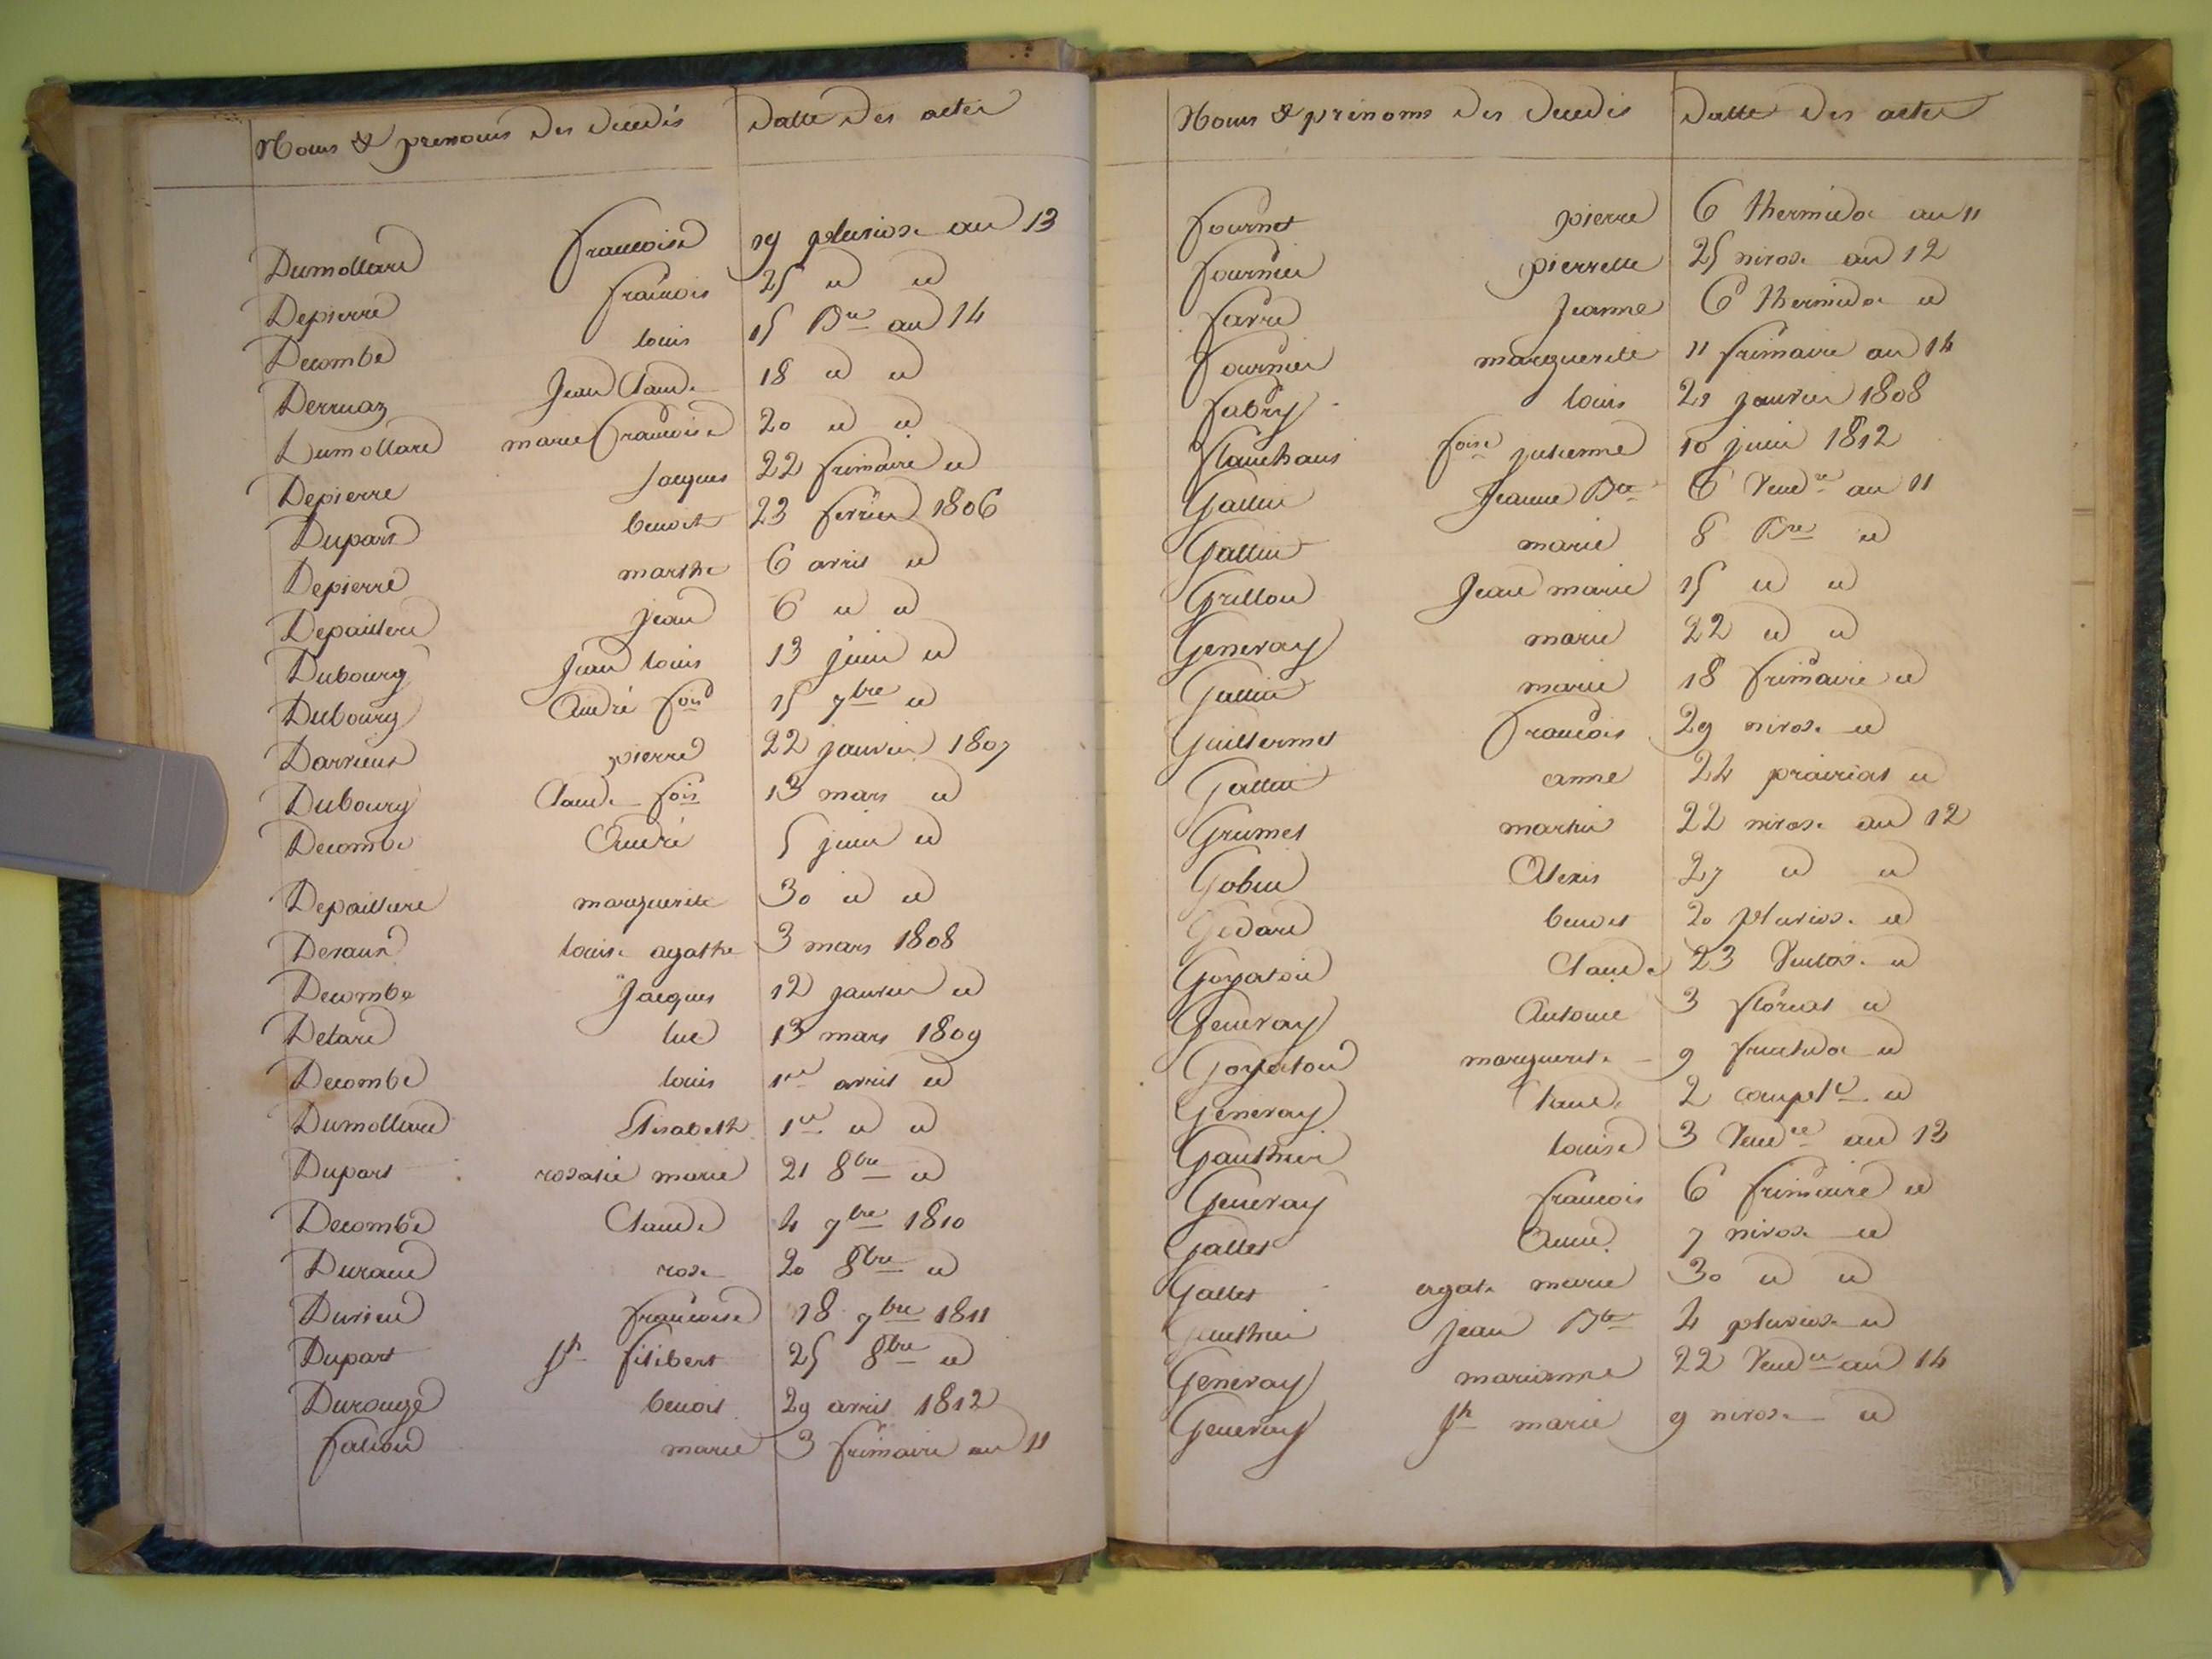 Noms & prenoms des decedés Datte des actes
Dumollard francoise 19 pluviose an 13
Depierre francois 25 id id
Decombe louis 15 Bre an 14
Derruaz Jean Claude 18 id id
Dumollard marie francoise 20 id id
Depierre Jacques 22 frimaire id
Dupart benoit 23 fevrier 1806
Depierre marthe 6 avril id
Depaillere jean 6 id id
Dubourg Jean louis 13 juin id
Dubourg André fois 15 7bre id
Darrieux pierre 22 janvier 1807
Dubourg Claude fois 13 mars id
Decombe André 5 juin id
Depaillere marguerite 30 id id
Devaux louise agathe 3 mars 1808
Decombe Jacques 12 janvier id
Delard luc 13 mars 1809
Decombe louis 1er avril id
Dumollard Elisabeth 1er id id
Dupart rosalie marie 21 8bre id
Decombe Claude 4 7bre 1810
Durand rose 20 8bre id
Durieu francoise 18 7bre 1811
Dupart jh filibert 25 8bre id
Durouge benoit 29 avril 1812
falion marie 3 frimaire an 11
Noms & prénoms des decedés Datte des actes
fournet pierre 6 thermidor an 11
fournier pierrette 25 nivose an 12
favre Jeanne 6 thermidor id
fournier marguerite 11 frimaire an 14
fabry louis 21 janvier 1808
foise julienne 10 juin 1812
Gallin Jeanne Bte 6 Vendre an 11
Gallin marie 8 Bre id
Grillon Jean marie 15 id id
Generay marie 22 id id
Gallin marie 18 frimaire id
Guillermet francois 29 nivose id
Gallin anne 24 prairial id
Grumet martin 22 nivose an 12
Gobin Alexis 27 id id
Godard benoit 20 pluviose id
Goyaton Claude 23 Ventose id
Generay Antoine 3 floreal id
Goyaton marguerite 9 fructidor id
Generay 2 complre id
Gauthier louise 3 Vendre an 13
Generay francois 6 frimaire id
Gallet Anne 7 nivose id
Gallet agate marie 30 id id
Gauthier jean Bte 4 pluviose id
Generay marianne 22 Vendre an 14
Generay jh marie 9 nivose id